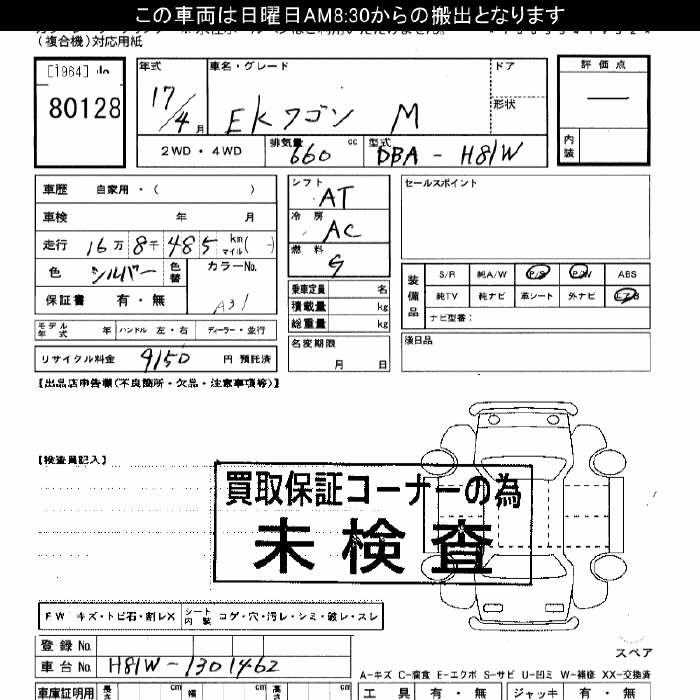 この車両は日曜日AM8:30からの搬出となります
(複合機)対応用紙
[1964]
80128
年式 車名・グレード ドア
17/4月 EKワゴン M 形状
評価点
—
内装
2WD・4WD 排気量 660 cc 型式 DBA - H81W
車歴 自家用・( )
車検 年 月
走行 16万8千485 km マイル( )
色 シルバー 色替 カラーNo. A31
保証書 有・無
モデル年式 年 ハンドル 左・右 ディーラー・並行
リサイクル料金 9150 円 預託済
シフト AT
冷房 AC
燃料 G
乗車定員 名
積載量 kg
総重量 kg
名変期限 月 日
セールスポイント
装備品
S/R 純A/W P/S P/W ABS
純TV 純ナビ 革シート 外ナビ エアB
ナビ型番:
後日品
【出品店申告欄(不良箇所・欠品・注意事項等)】
【検査員記入】
買取保証コーナーの為
未検査
FW キズ・トビ石・割レX シート内装 コゲ・穴・汚レ・シミ・破レ・スレ
登録No.
車台No. H81W-1301462
スペア
A-キズ C-腐食 E-エクボ S-サビ U-凹ミ W-補修 XX-交換済
車庫証明用 長さ cm 幅 cm 高さ cm
工具 有・無 ジャッキ 有・無